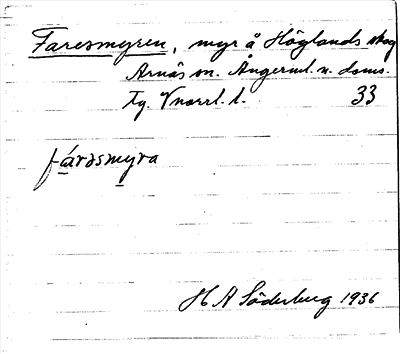 Faresmyren, myr å Höglands skog
Arnäs sn. Ångerml. n. doms.
Tg. Vnorrl. l. 33
fárəsmyra
H A Söderberg 1936